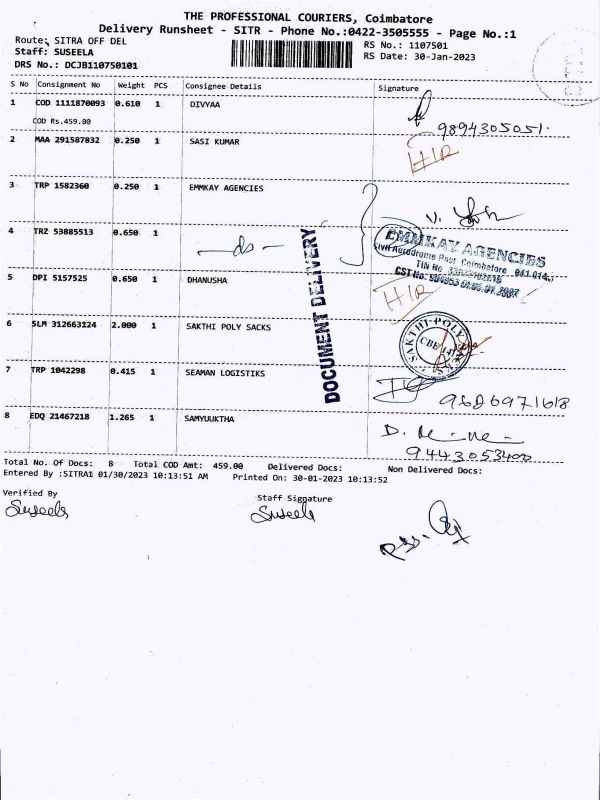 THE PROFESSIONAL COURIERS, Coimbatore
Delivery Runsheet - SITR - Phone No.:0422-3505555 - Page No.:1
Route: SITRA OFF DEL
RS No.: 1107501
Staff: SUSEELA
RS Date: 30-Jan-2023
DRS No.: DCJB110750101
S No Consignment No Weight PCS Consignee Details Signature
1 COD 1111870093 0.610 1 DIVYAA
COD Rs.459.00
9894305051.
2 MAA 291587832 0.250 1 SASI KUMAR
H/R
3 TRP 1582360 0.250 1 EMMKAY AGENCIES
4 TRZ 53885513 0.650 1 —do—
EMMKAY AGENCIES
Civil Aerodrome Post Coimbatore 641 014.
TIN No
CST No:
DOCUMENT DELIVERY
5 DPI 5157525 0.650 1 DHANUSHA
H/R
6 SLM 312663124 2.000 1 SAKTHI POLY SACKS
SAKTHI POLY SACKS
CBE-14
7 TRP 1042298 0.415 1 SEAMAN LOGISTIKS
9686971618
8 EDQ 21467218 1.265 1 SAMYUUKTHA
9443053400
Total No. Of Docs: 8 Total COD Amt: 459.00 Delivered Docs: Non Delivered Docs:
Entered By :SITRA1 01/30/2023 10:13:51 AM Printed On: 30-01-2023 10:13:52
Verified By Staff Signature
Suseela Suseela